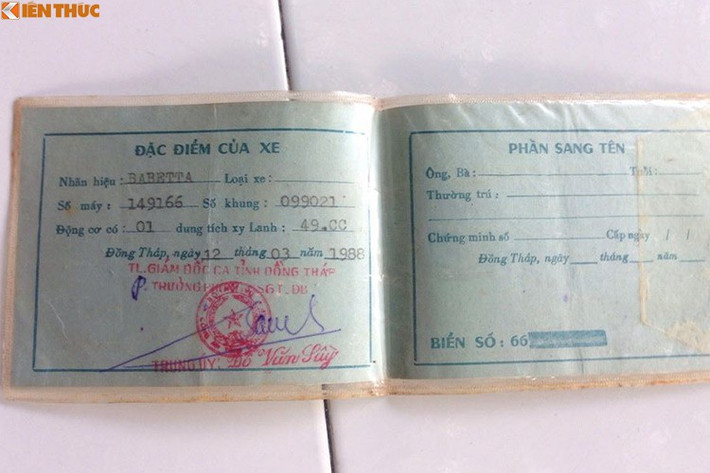 KIẾN THỨC
ĐẶC ĐIỂM CỦA XE
Nhãn hiệu : BABETTA Loại xe :
Số máy : 149166 Số khung : 099021
Động cơ có : 01 dung tích xy Lanh : 49.CC
Đồng Tháp, ngày 12 tháng 03 năm 1988
TL. GIÁM ĐỐC CA TỈNH ĐỒNG THÁP
P. TRƯỞNG PHÒNG CSGT. ĐB
TRUNG ÚY: Đỗ Văn Suỹ
PHẦN SANG TÊN
Ông, Bà : Tuổi :
Thường trú :
Chứng minh số Cấp ngày / /
Đồng Tháp, ngày tháng năm
BIỂN SỐ : 66